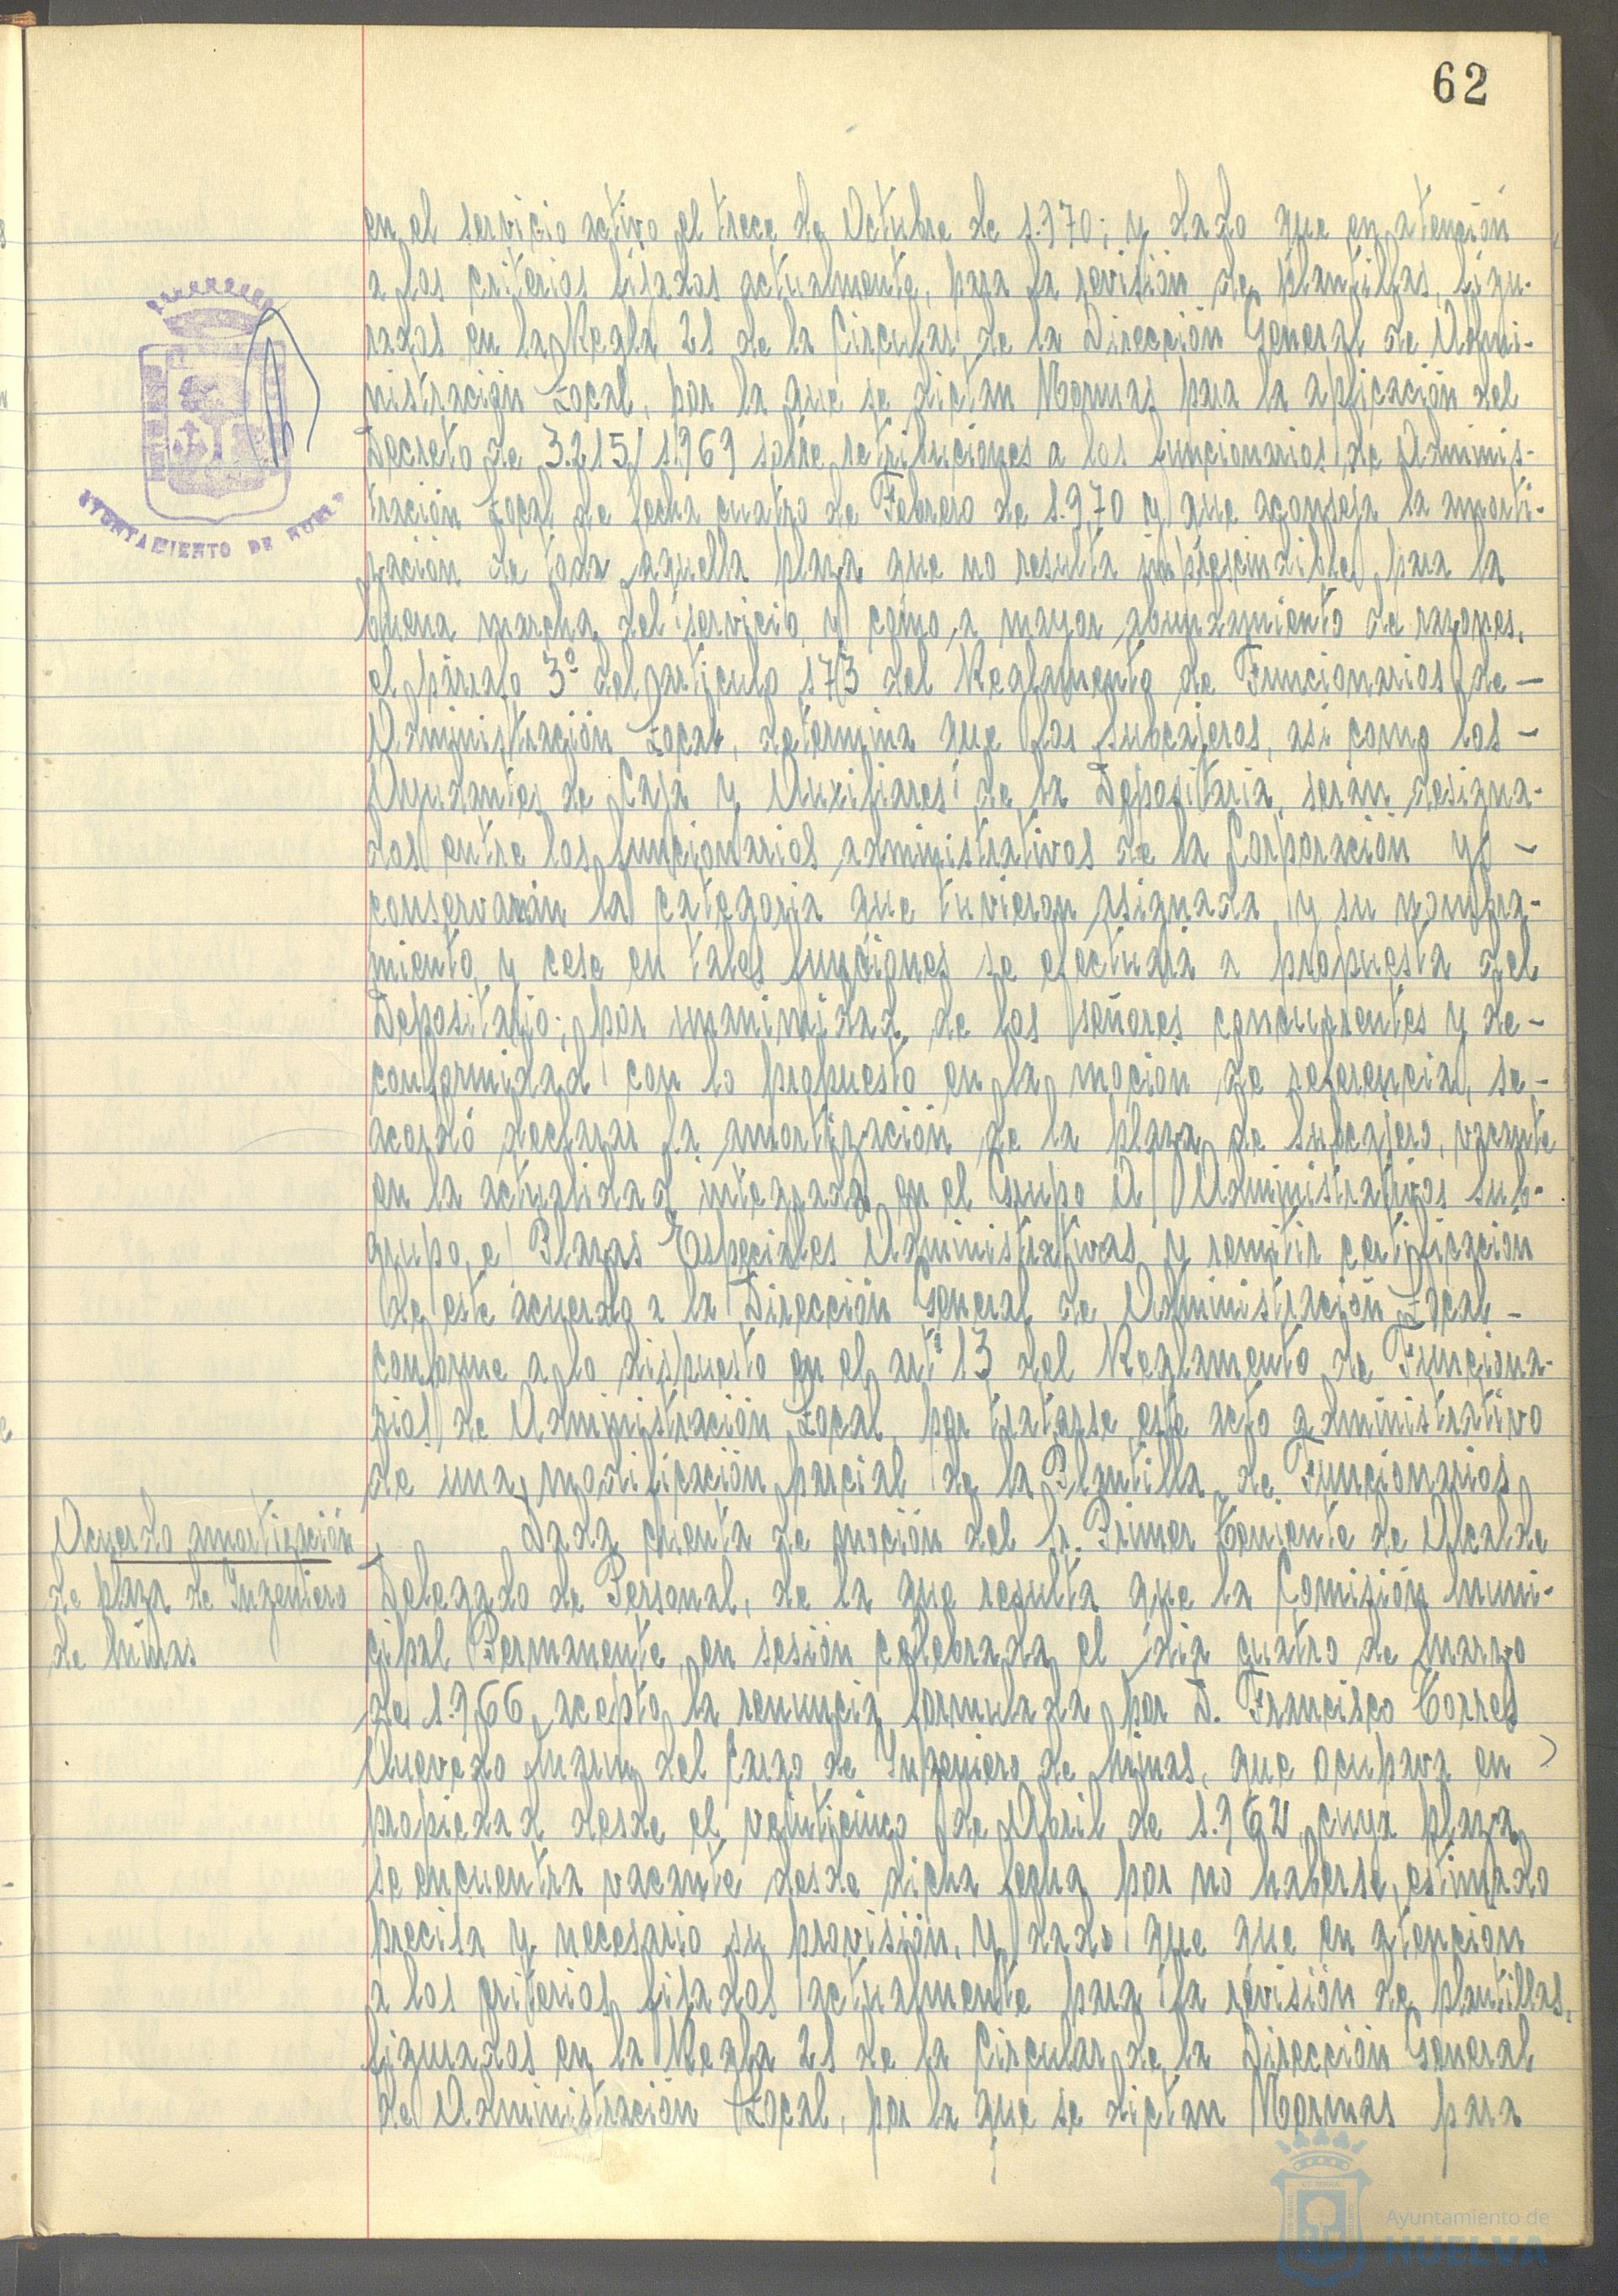 62
en el servicio activo el trece de Octubre de 1.970; y dado que en atención
a los criterios fijados actualmente, para la revisión de plantillas, figu-
radas en la Regla 21 de la Circular de la Dirección General de Admi-
nistración Local, por la que se dictan Normas para la aplicación del
Decreto de 3.215/1.969 sobre retribuciones a los funcionarios de Adminis-
tración Local de fecha cuatro de Febrero de 1.970 y que aconseja la amorti-
zación de toda aquella plaza que no resulta imprescindible para la
buena marcha del servicio y como, a mayor abundamiento de razones,
el párrafo 3º del artículo 173 del Reglamento de Funcionarios de -
Administración Local, determina que los Subcajeros, así como los -
Ayudantes de Caja y Auxiliares de la Depositaría, serán designa-
dos entre los funcionarios administrativos de la Corporación y -
conservarán la categoria que tuvieron asignada y su nombra-
miento y cese en tales funciones se efectuará a propuesta del
Depositario; por unanimidad de los señores concurrentes y de -
conformidad con lo propuesto en la moción de referencia, se -
acordó declarar la amortización de la plaza de Subcajero, vacante
en la actualidad integrada en el Grupo A) Administrativos Sub-
grupo e) Plazas Especiales Administrativas y remitir certificación
de este acuerdo a la Dirección General de Administración Local -
conforme a lo dispuesto en el artº 13 del Reglamento de Funciona-
rios de Administración Local por tratarse este acto administrativo
de una modificación parcial de la Plantilla de Funcionarios
Acuerdo amortización
de plaza de Ingeniero
de Minas
Dada cuenta de moción del Sr. Primer Teniente de Alcalde
Delegado de Personal, de la que resulta que la Comisión Muni-
cipal Permanente, en sesión celebrada el dia cuatro de Marzo
de 1.966, acepto la renuncia formulada por D. Francisco Torres
Quevedo del Cargo de Ingeniero de Minas, que ocupava en
propiedad desde el veinticinco de Abril de 1.962, cuya plaza
se encuentra vacante desde dicha fecha por no haberse estimado
precisa y necesario su provisión, y dado que que en atencion
a los criterios fijados actualmente para la revisión de plantillas,
figurados en la Regla 21 de la Circular de la Dirección General
de Administración Local, por la que se dictan Normas para
AYUNTAMIENTO DE HUELVA
Ayuntamiento de
HUELVA